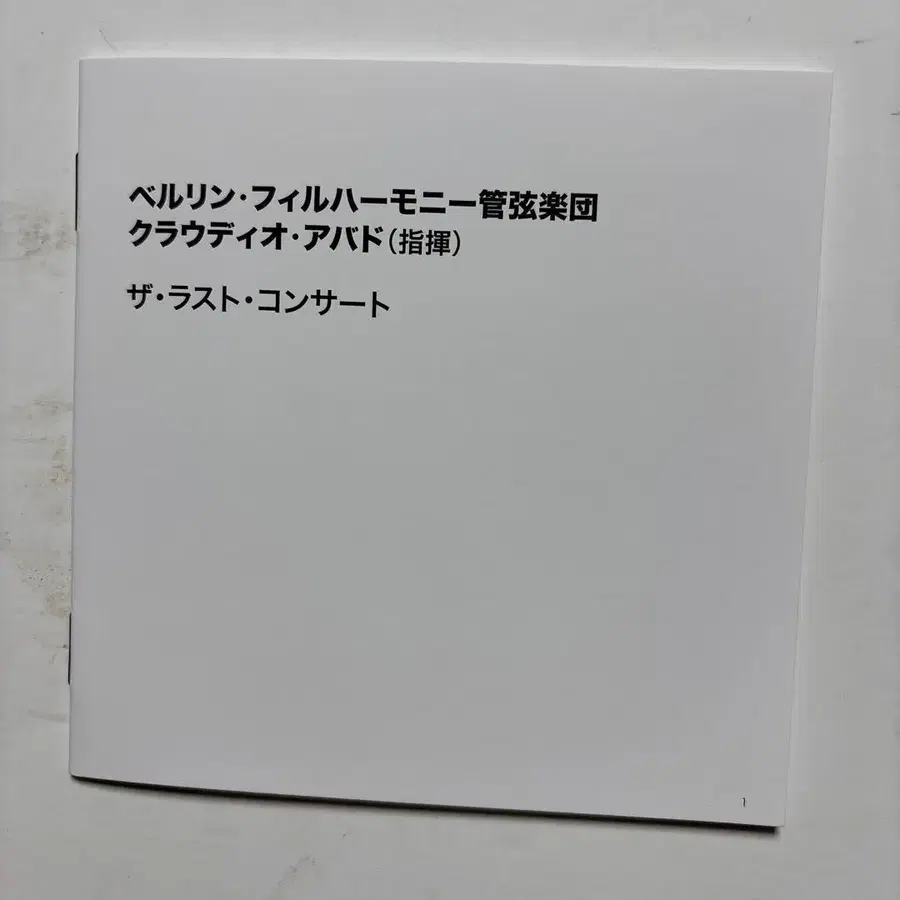 ベルリン・フィルハーモニー管弦楽団
クラウディオ・アバド（指揮）
ザ・ラスト・コンサート
1